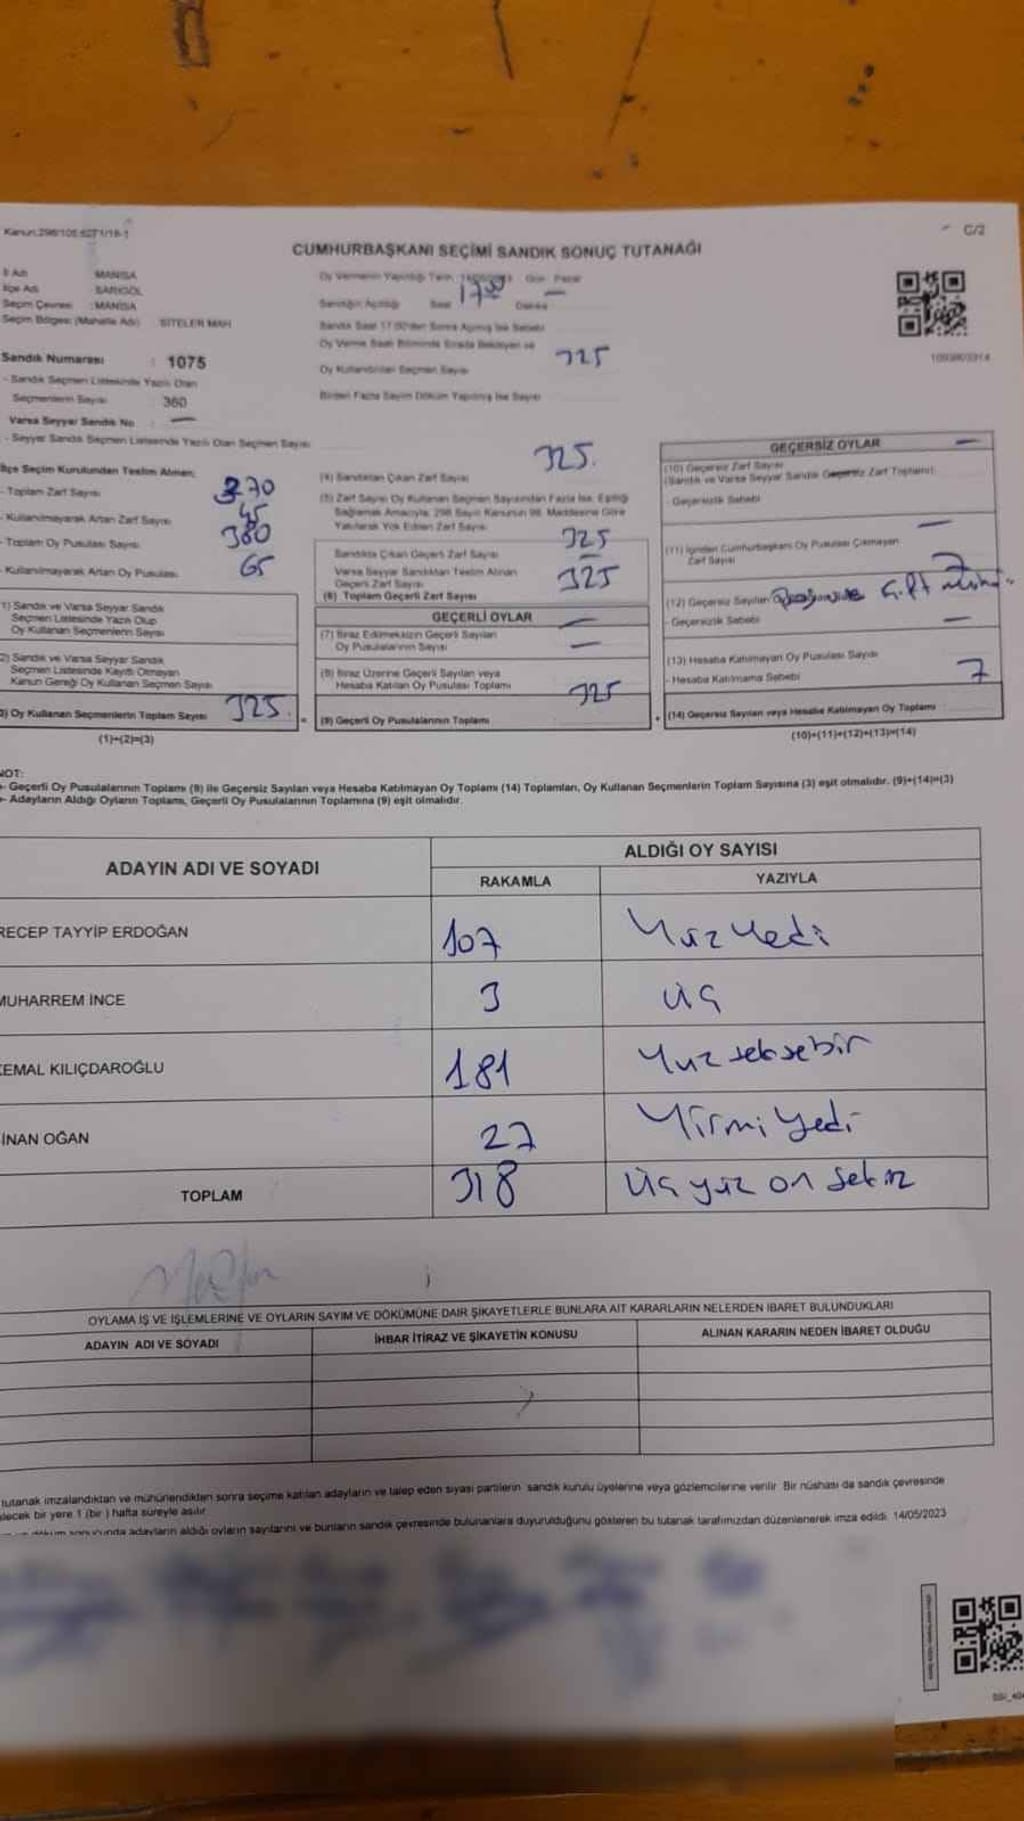 Kanun:298/105 6271/16-1
C/2
CUMHURBAŞKANI SEÇİMİ SANDIK SONUÇ TUTANAĞI
İl Adı MANİSA
İlçe Adı SARIGÖL
Seçim Çevresi : MANİSA
Seçim Bölgesi (Mahalle Adı) SİTELER MAH
Oy Vermenin Yapıldığı Tarih Gün Pazar
Sandığın Açıldığı Saat 17:00 Dakika —
Sandık Saat 17:00'den Sonra Açılmış İse Sebebi
Oy Verme Saati Bitiminde Sırada Bekleyen ve
Oy Kullandırılan Seçmen Sayısı 325
Birden Fazla Sayım Döküm Yapılmış İse Sayısı
Sandık Numarası : 1075
- Sandık Seçmen Listesinde Yazılı Olan
Seçmenlerin Sayısı 360
Varsa Seyyar Sandık No —
- Seyyar Sandık Seçmen Listesinde Yazılı Olan Seçmen Sayısı
İlçe Seçim Kurulundan Teslim Alınan;
- Toplam Zarf Sayısı 370
- Kullanılmayarak Artan Zarf Sayısı 45
- Toplam Oy Pusulası Sayısı 380
- Kullanılmayarak Artan Oy Pusulası 65
1) Sandık ve Varsa Seyyar Sandık
Seçmen Listesinde Yazılı Olup
Oy Kullanan Seçmenlerin Sayısı
2) Sandık ve Varsa Seyyar Sandık
Seçmen Listesinde Kayıtlı Olmayan
Kanun Gereği Oy Kullanan Seçmen Sayısı
3) Oy Kullanan Seçmenlerin Toplam Sayısı 325
(1)+(2)=(3)
(4) Sandıktan Çıkan Zarf Sayısı 325
(5) Zarf Sayısı Oy Kullanan Seçmen Sayısından Fazla İse, Eşitliği
Sağlamak Amacıyla; 298 Sayılı Kanunun 98. Maddesine Göre
Yakılarak Yok Edilen Zarf Sayısı
Sandıkta Çıkan Geçerli Zarf Sayısı 325
Varsa Seyyar Sandıktan Teslim Alınan
Geçerli Zarf Sayısı —
(6) Toplam Geçerli Zarf Sayısı 325
GEÇERLİ OYLAR
(7) İtiraz Edilmeksizin Geçerli Sayılan
Oy Pusulalarının Sayısı —
(8) İtiraz Üzerine Geçerli Sayılan veya
Hesaba Katılan Oy Pusulası Toplamı —
(9) Geçerli Oy Pusulalarının Toplamı 325
GEÇERSİZ OYLAR
(10) Geçersiz Zarf Sayısı —
(Sandık ve Varsa Seyyar Sandık Geçersiz Zarf Toplamı)
- Geçersizlik Sebebi
(11) İçinden Cumhurbaşkanı Oy Pusulası Çıkmayan
Zarf Sayısı —
(12) Geçersiz Sayılan 7
- Geçersizlik Sebebi çift mühür
(13) Hesaba Katılmayan Oy Pusulası Sayısı —
- Hesaba Katılmama Sebebi
(14) Geçersiz Sayılan veya Hesaba Katılmayan Oy Toplamı 7
(10)+(11)+(12)+(13)=(14)
NOT:
- Geçerli Oy Pusulalarının Toplamı (9) ile Geçersiz Sayılan veya Hesaba Katılmayan Oy Toplamı (14) Toplamları, Oy Kullanan Seçmenlerin Toplam Sayısına (3) eşit olmalıdır. (9)+(14)=(3)
- Adayların Aldığı Oyların Toplamı, Geçerli Oy Pusulalarının Toplamına (9) eşit olmalıdır.
ADAYIN ADI VE SOYADI
ALDIĞI OY SAYISI
RAKAMLA YAZIYLA
RECEP TAYYİP ERDOĞAN 107 Yüz Yedi
MUHARREM İNCE 3 üç
KEMAL KILIÇDAROĞLU 181 Yüz seksebir
SİNAN OĞAN 27 Yirmi yedi
TOPLAM 318 Üç yüz on sekiz
OYLAMA İŞ VE İŞLEMLERİNE VE OYLARIN SAYIM VE DÖKÜMÜNE DAİR ŞİKAYETLERLE BUNLARA AİT KARARLARIN NELERDEN İBARET BULUNDUKLARI
ADAYIN ADI VE SOYADI İHBAR İTİRAZ VE ŞİKAYETİN KONUSU ALINAN KARARIN NEDEN İBARET OLDUĞU
tutanak imzalandıktan ve mühürlendikten sonra seçime katılan adayların ve talep eden siyasi partilerin sandık kurulu üyelerine veya gözlemcilerine verilir. Bir nüshası da sandık çevresinde
bir yere 1 (bir) hafta süreyle asılır.
döküm sonucunda adayların aldığı oyların sayılarını ve bunların sandık çevresinde bulunanlara duyurulduğunu gösteren bu tutanak tarafımızdan düzenlenerek imza edildi. 14/05/2023